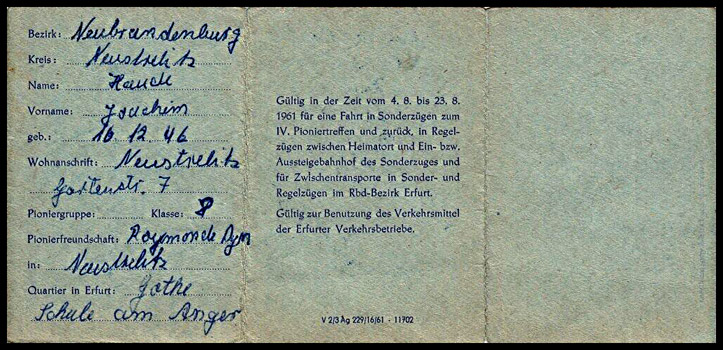 Bezirk: Neubrandenburg
Kreis: Neustrelitz
Name: Hauck
Vorname: Joachim
geb.: 16 12. 46
Wohnanschrift: Neustrelitz
Gartenstr. 7
Pioniergruppe: Klasse: 8
Pionierfreundschaft: Raymonde
in: Neustrelitz
Quartier in Erfurt: Göthe
Schule am Anger
Gültig in der Zeit vom 4. 8. bis 23. 8.
1961 für eine Fahrt in Sonderzügen zum
IV. Pioniertreffen und zurück, in Regel-
zügen zwischen Heimatort und Ein- bzw.
Aussteigebahnhof des Sonderzuges und
für Zwischentransporte in Sonder- und
Regelzügen im Rbd-Bezirk Erfurt.
Gültig zur Benutzung des Verkehrsmittel
der Erfurter Verkehrsbetriebe.
V 2/3 Ag 229/16/61 - 11702